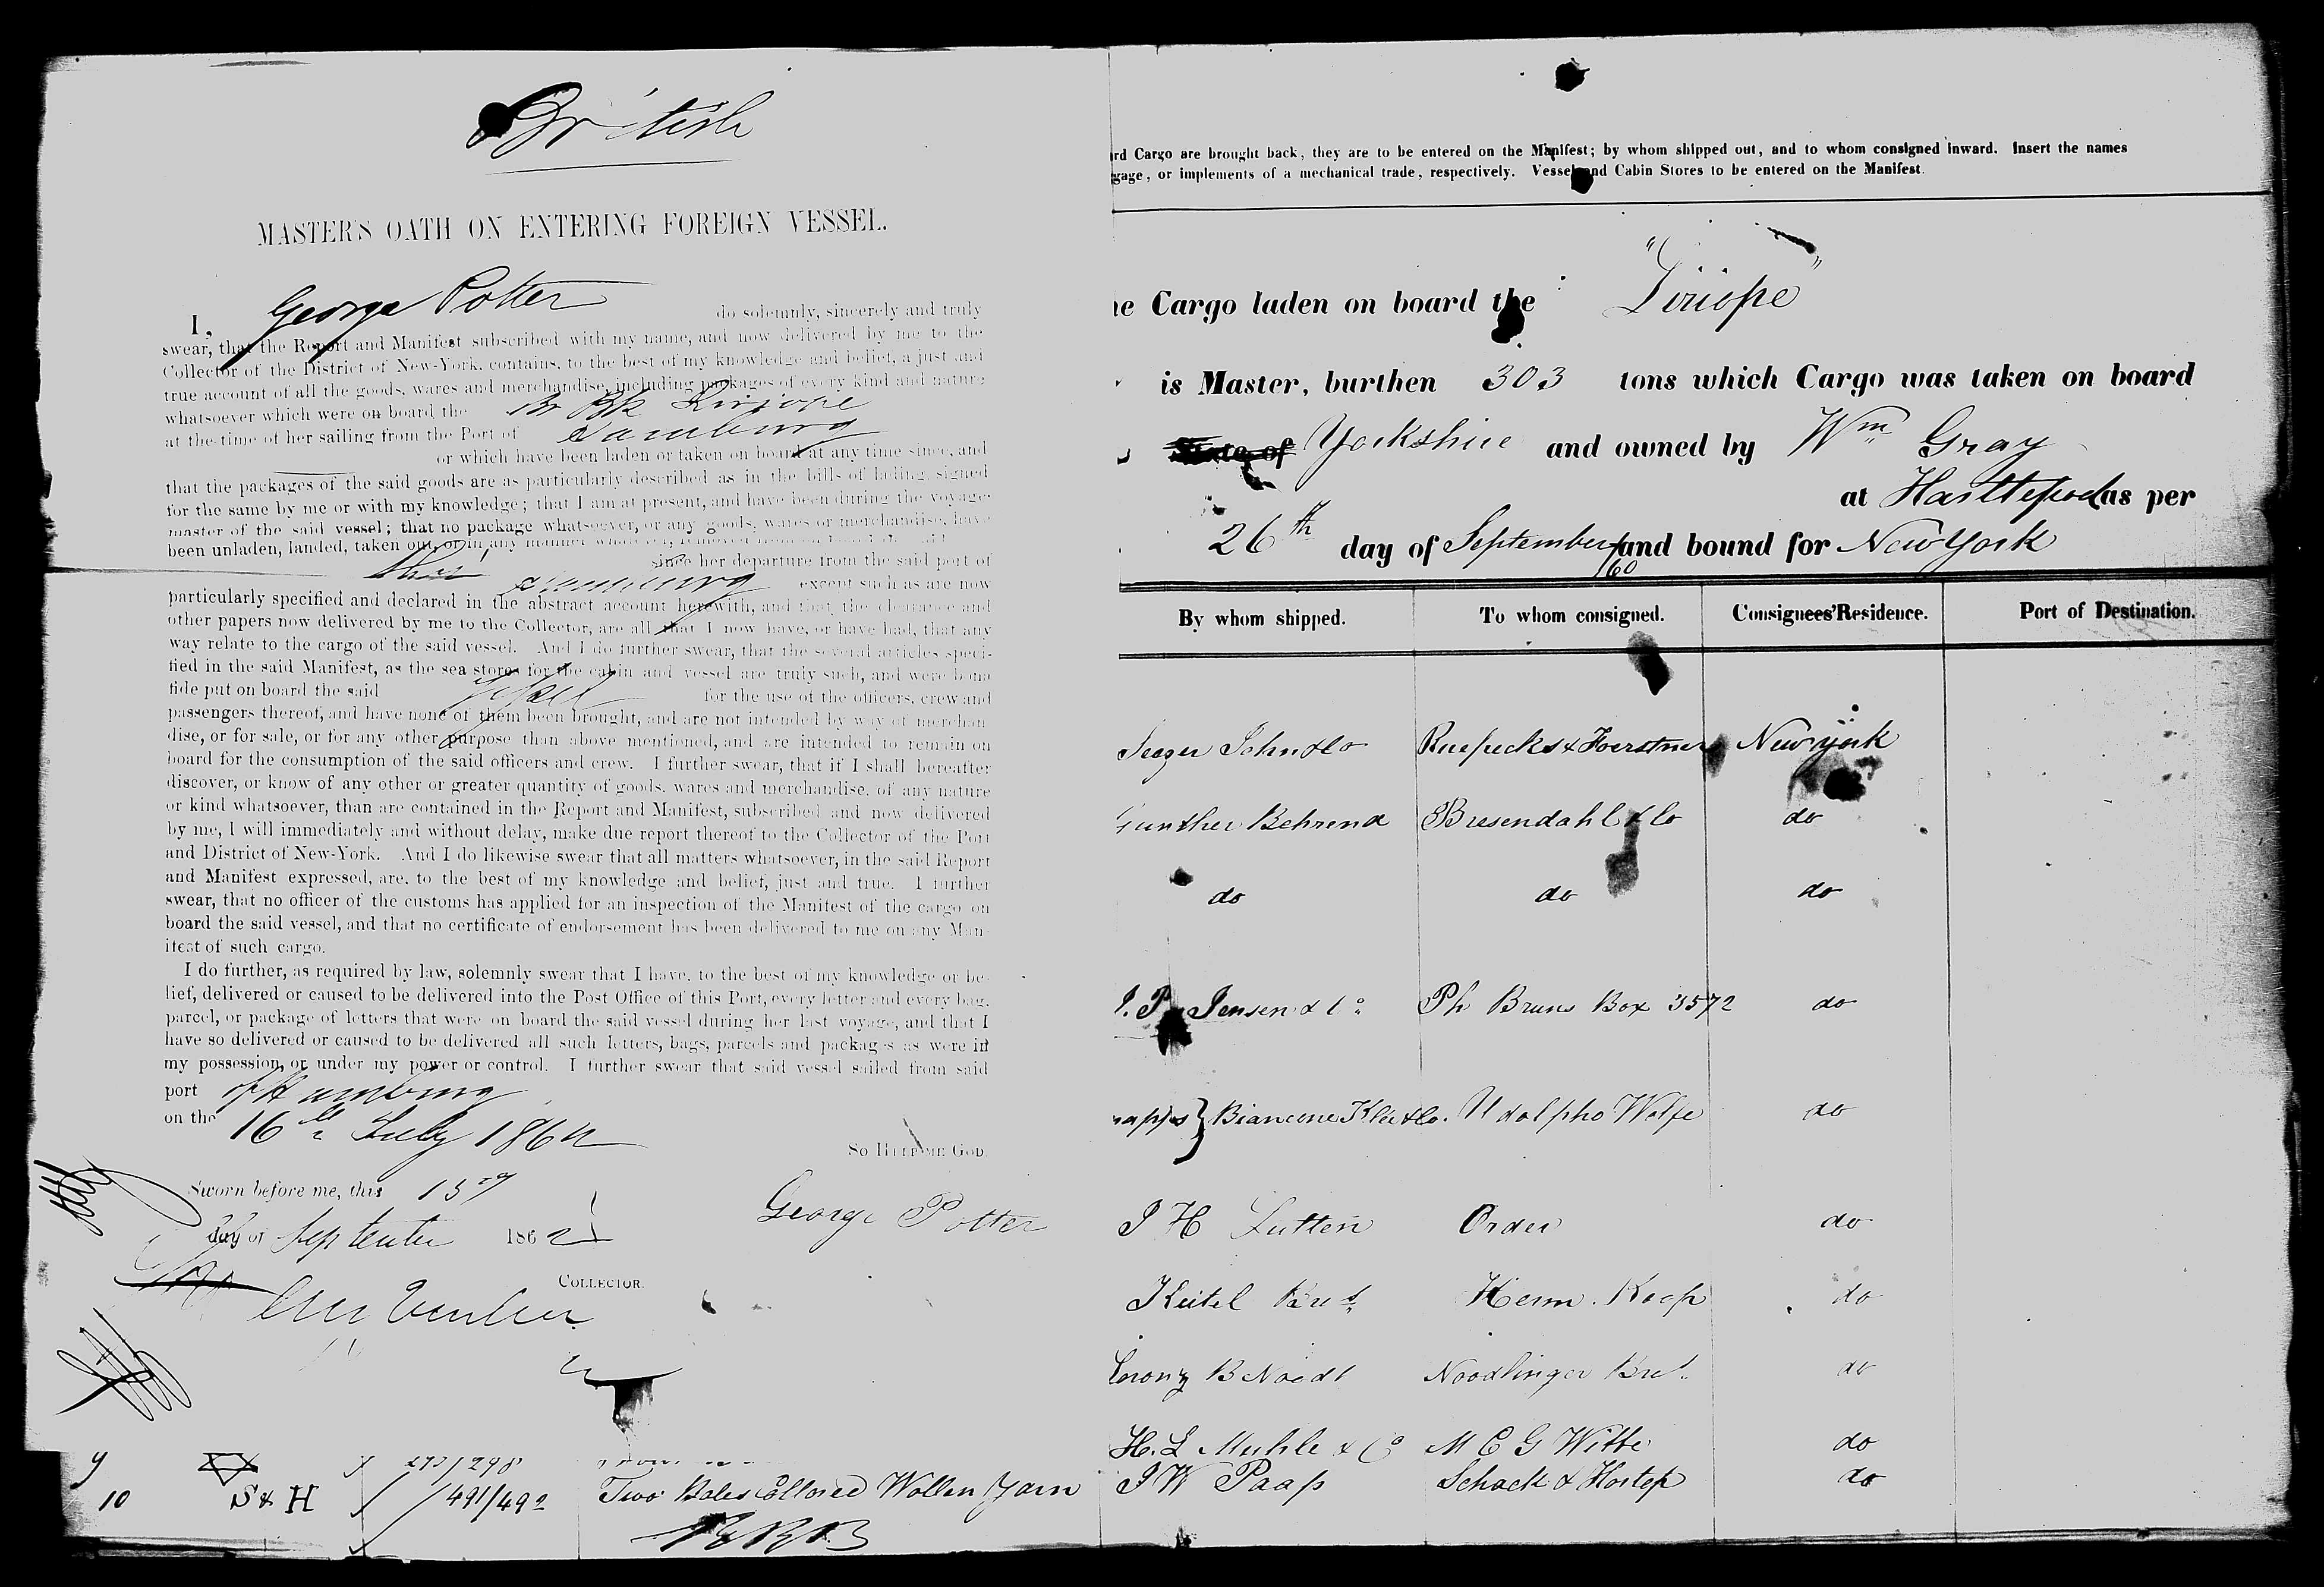 British
MASTER'S OATH ON ENTERING FOREIGN VESSEL.
I, George Potter do solemnly, sincerely and truly
swear, that the Report and Manifest subscribed with my name, and now delivered by me to the
Collector of the District of New-York, contains, to the best of my knowledge and belief, a just and
true account of all the goods, wares and merchandise, including packages of every kind and nature
whatsoever which were on board the Br Bk Liriope
at the time of her sailing from the Port of Hamburg
or which have been laden or taken on board at any time since, and
that the packages of the said goods are as particularly described as in the bills of lading, signed
for the same by me or with my knowledge; that I am at present, and have been during the voyage
master of the said vessel; that no package whatsoever, or any goods, wares or merchandise, have
been unladen, landed, taken out, or in any manner whatever, removed from on board the said
Ship since her departure from the said port of
Hamburg except such as are now
particularly specified and declared in the abstract account herewith, and that the clearance and
other papers now delivered by me to the Collector, are all that I now have, or have had, that any
way relate to the cargo of the said vessel. And I do further swear, that the several articles speci-
fied in the said Manifest, as the sea stores for the cabin and vessel are truly such, and were bona
fide put on board the said Vessel for the use of the officers, crew and
passengers thereof, and have none of them been brought, and are not intended by way of merchan
dise, or for sale, or for any other purpose than above mentioned, and are intended to remain on
board for the consumption of the said officers and crew. I further swear, that if I shall hereafter
discover, or know of any other or greater quantity of goods, wares and merchandise, of any nature
or kind whatsoever, than are contained in the Report and Manifest, subscribed and now delivered
by me, I will immediately and without delay, make due report thereof to the Collector of the Port
and District of New-York. And I do likewise swear that all matters whatsoever, in the said Report
and Manifest expressed, are, to the best of my knowledge and belief, just and true. I further
swear, that no officer of the customs has applied for an inspection of the Manifest of the cargo on
board the said vessel, and that no certificate of endorsement has been delivered to me on any Man-
ifest of such cargo.
I do further, as required by law, solemnly swear that I have, to the best of my knowledge or be-
lief, delivered or caused to be delivered into the Post Office of this Port, every letter and every bag,
parcel, or package of letters that were on board the said vessel during her last voyage, and that I
have so delivered or caused to be delivered all such letters, bags, parcels and packages as were in
my possession, or under my power or control. I further swear that said vessel sailed from said
port of Hamburg
on the 16th July 186
So HELP ME GOD.
Sworn before me, this 15
day of September 1862
George Potter
COLLECTOR.
9 298
10 S & H 491/492 Two Bales Collored Wollen Yarn
rd Cargo are brought back, they are to be entered on the Manifest; by whom shipped out, and to whom consigned inward. Insert the names
gage, or implements of a mechanical trade, respectively. Vessel and Cabin Stores to be entered on the Manifest.
e Cargo laden on board the "Liriope"
is Master, burthen 303 tons which Cargo was taken on board
State of Yorkshire and owned by Wm Gray
at Hartlepool as per
26th day of September/60 and bound for New York
By whom shipped. To whom consigned. Consignees' Residence. Port of Destination.
Seager John & Co Ruepecks & Foerstner New york
Gunther Behrend Bresendahl & Co do
do do do
J. P. Jensen & Co Ph Bruns Box 3572 do
Biancone Klée & Co. Udolpho Wolfe do
J H Lutten Order do
Keitel Bros Herm. Koop do
Lorenz B Noedt Noodlinger Bro. do
H. L Muhle & Co M C G Witte do
J W Paap Schack & Hostop do